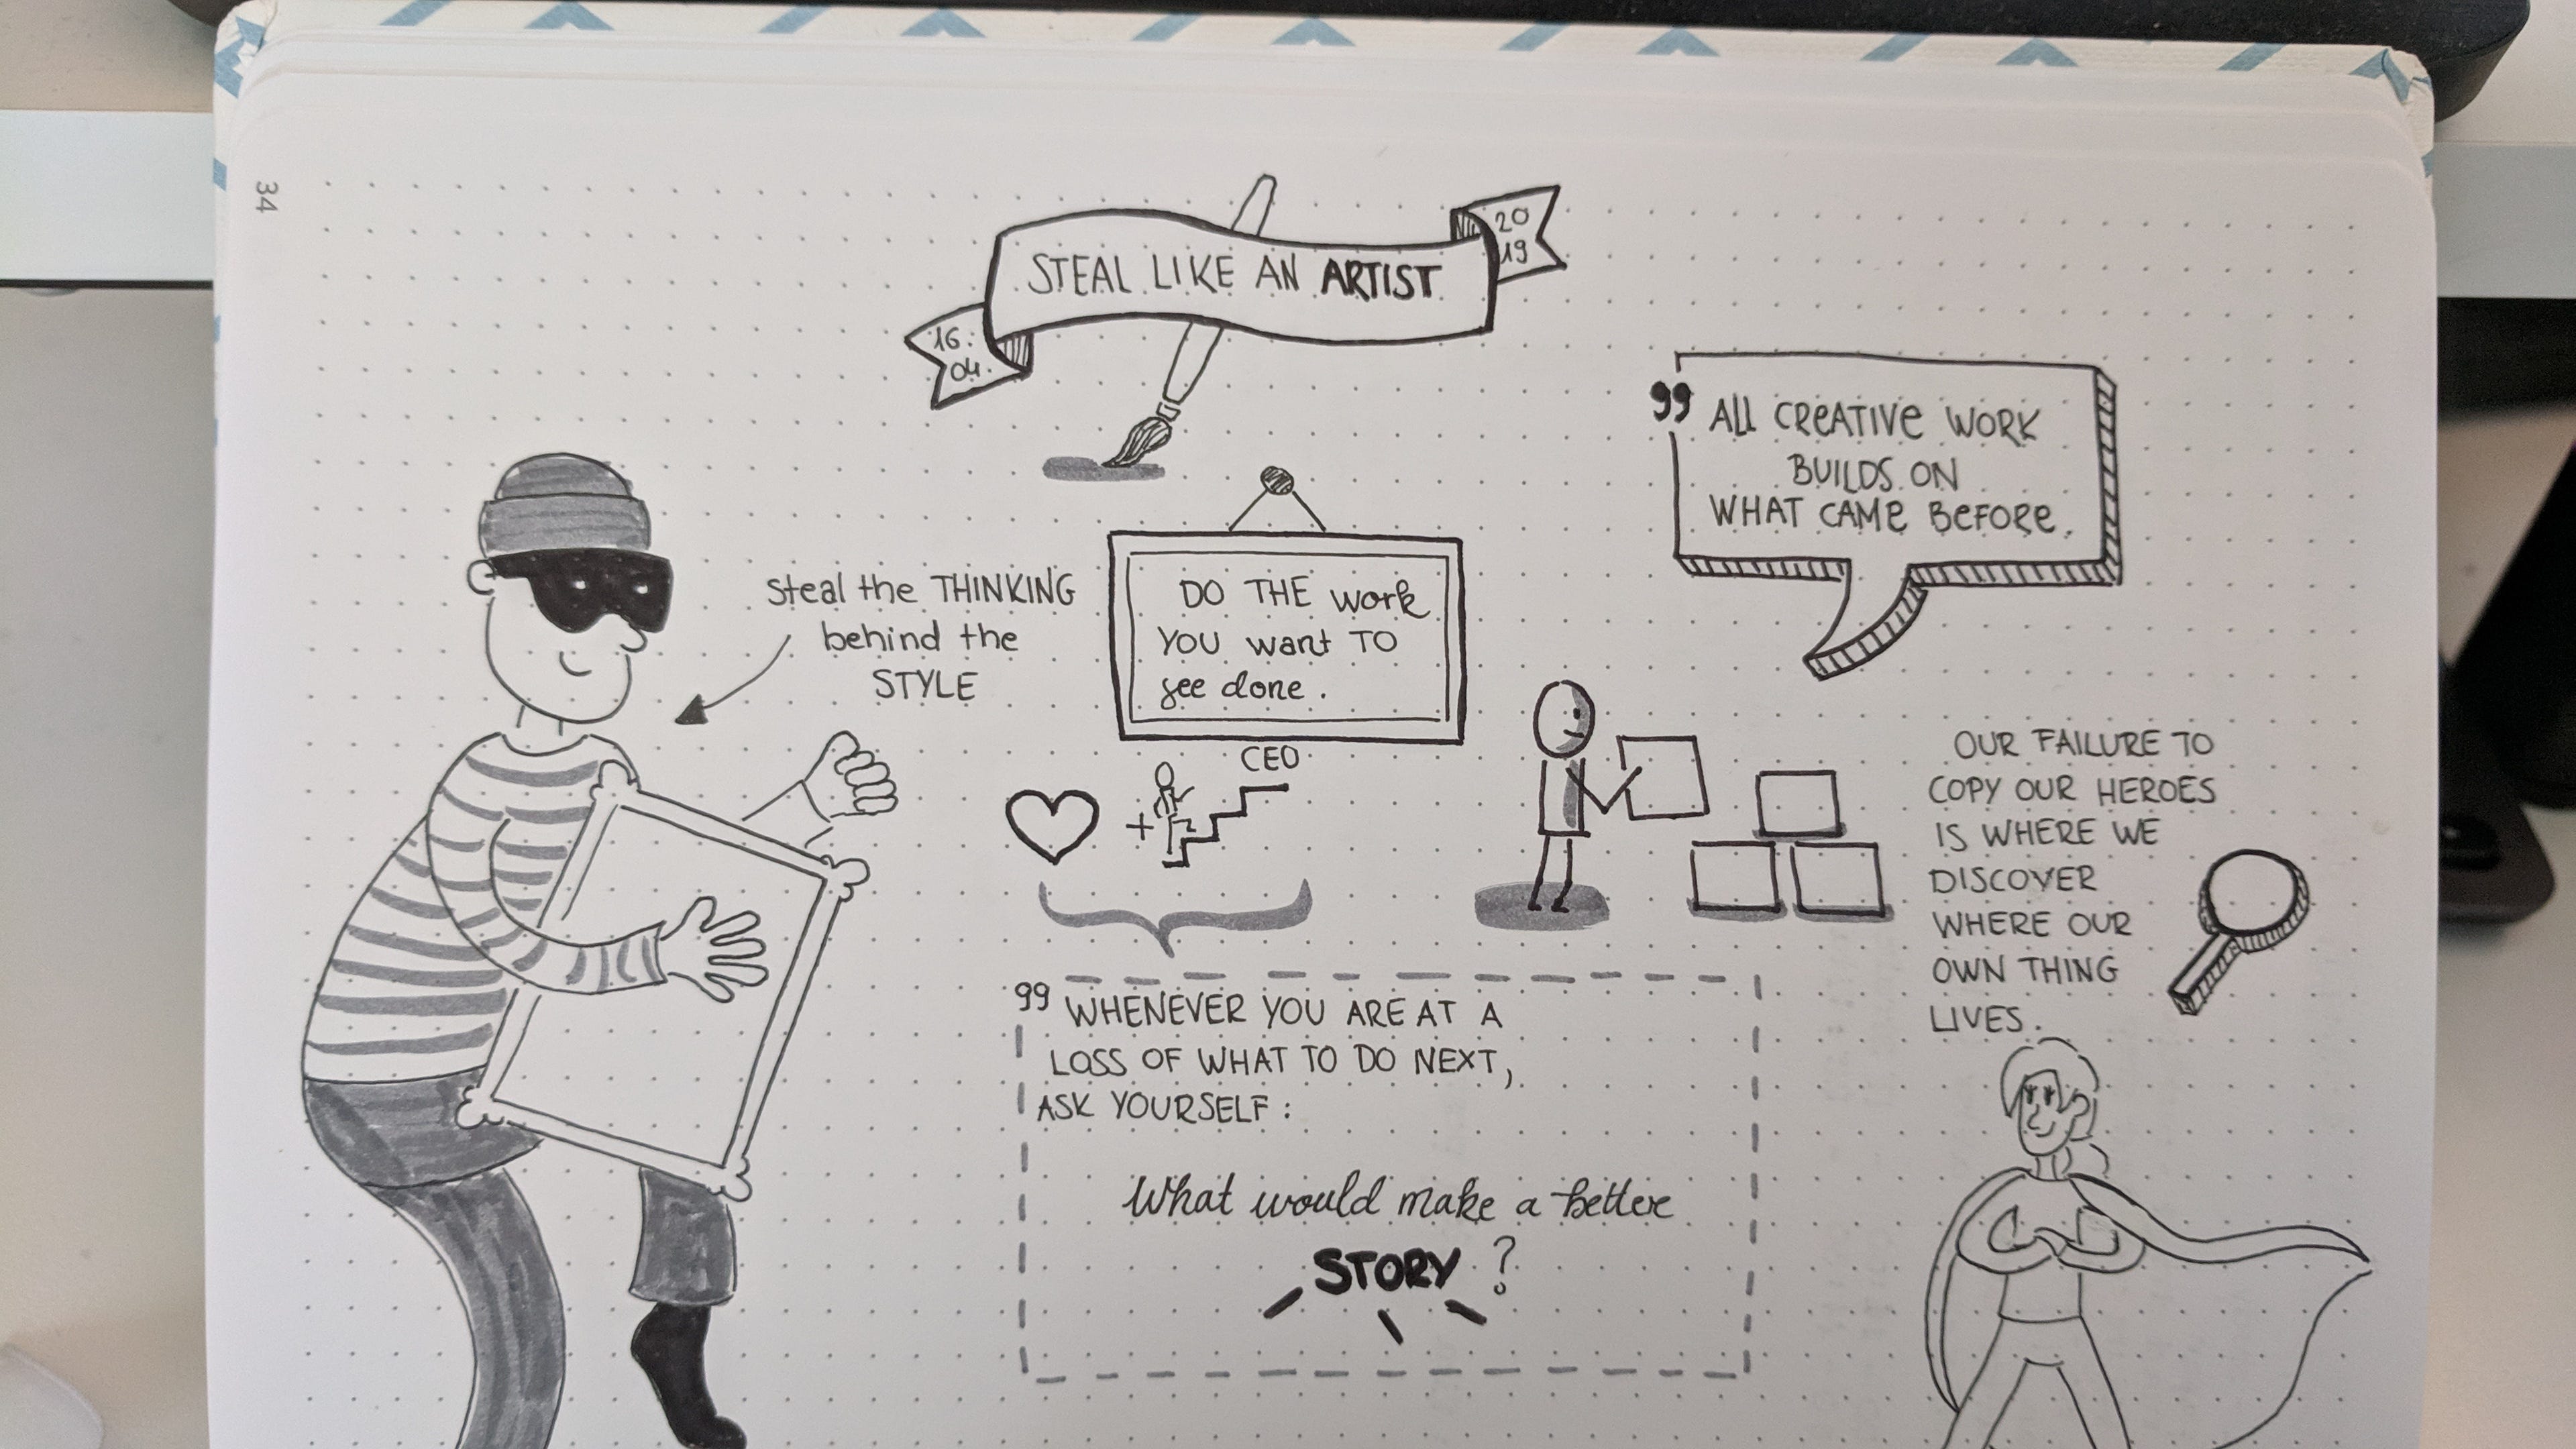 34
STEAL LIKE AN ARTIST
20
19
16.
04.
99 ALL CREATIVE WORK
BUILDS ON
WHAT CAME BEFORE.
steal the THINKING
behind the
STYLE
DO THE work
YOU want TO
see done.
CEO
+
OUR FAILURE TO
COPY OUR HEROES
IS WHERE WE
DISCOVER
WHERE OUR
OWN THING
LIVES.
99 WHENEVER YOU ARE AT A
LOSS OF WHAT TO DO NEXT,
ASK YOURSELF:
What would make a better
STORY ?